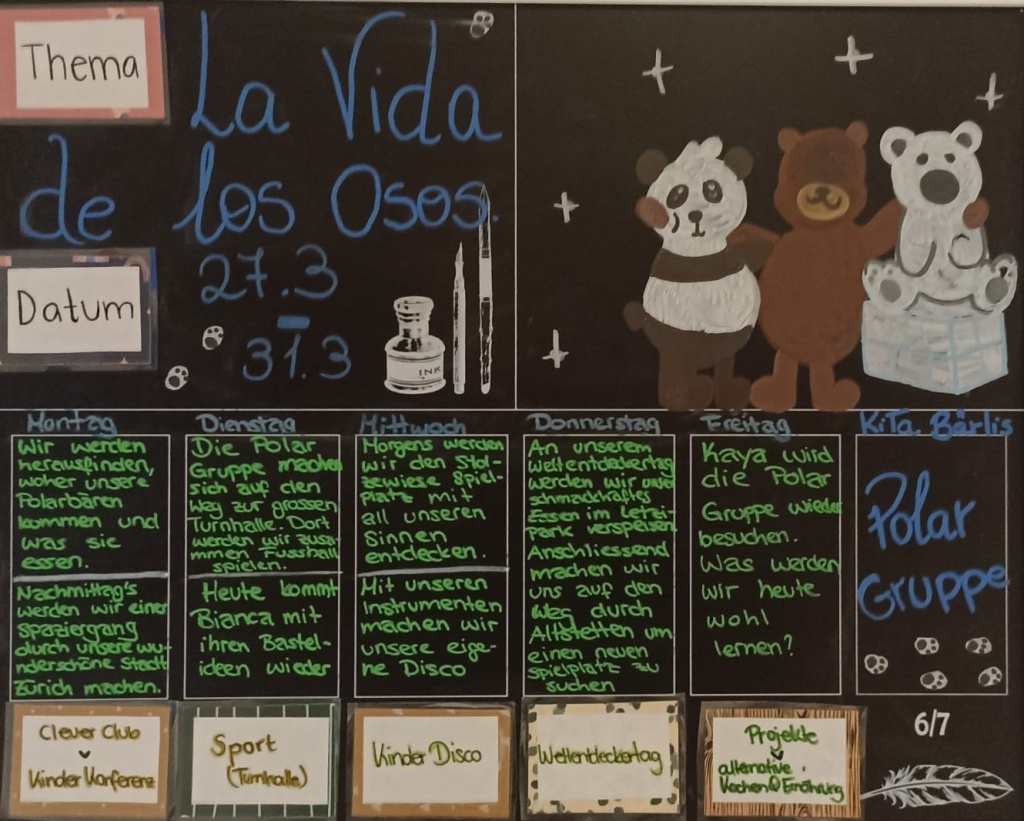 Thema
La Vida
de los Osos.
Datum
27.3
-
31.3
INK
Montag
Wir werden
herausfinden,
woher unsere
Polarbären
kommen und
was sie
essen.
Nachmittag's
werden wir einen
spaziergang
durch unsere wu-
nderschöne Stadt
Zürich machen.
Clever Club
Kinder Konferenz
Dienstag
Die Polar
Gruppe machen
sich auf den
Weg zur grossen
Turnhalle. Dort
werden wir zusa-
mmen Fussball
spielen.
Heute kommt
Bianca mit
ihren Bastel-
ideen wieder
Sport
(Turnhalle)
Mittwoch
Morgens werden
wir den Stol-
zewiese Spiel-
platz mit
all unseren
Sinnen
entdecken.
Mit unseren
Instrumenten
machen wir
unsere eige-
ne Disco
Kinder Disco
Donnerstag
An unserem
Weltentdeckertag
werden wir unser
schmackhaftes
Essen im Letzi-
Park verspeisen
Anschliessend
machen wir
uns auf den
Weg durch
Altstetten um
einen neuen
spielplatz zu
suchen
Weltentdeckertag
Freitag
Kaya wird
die Polar
Gruppe wieder
besuchen.
Was werden
wir heute
wohl
lernen?
Projekte
alternative.
Kochen & Ernährung
KiTa Bärlis
Polar
Gruppe
6/7